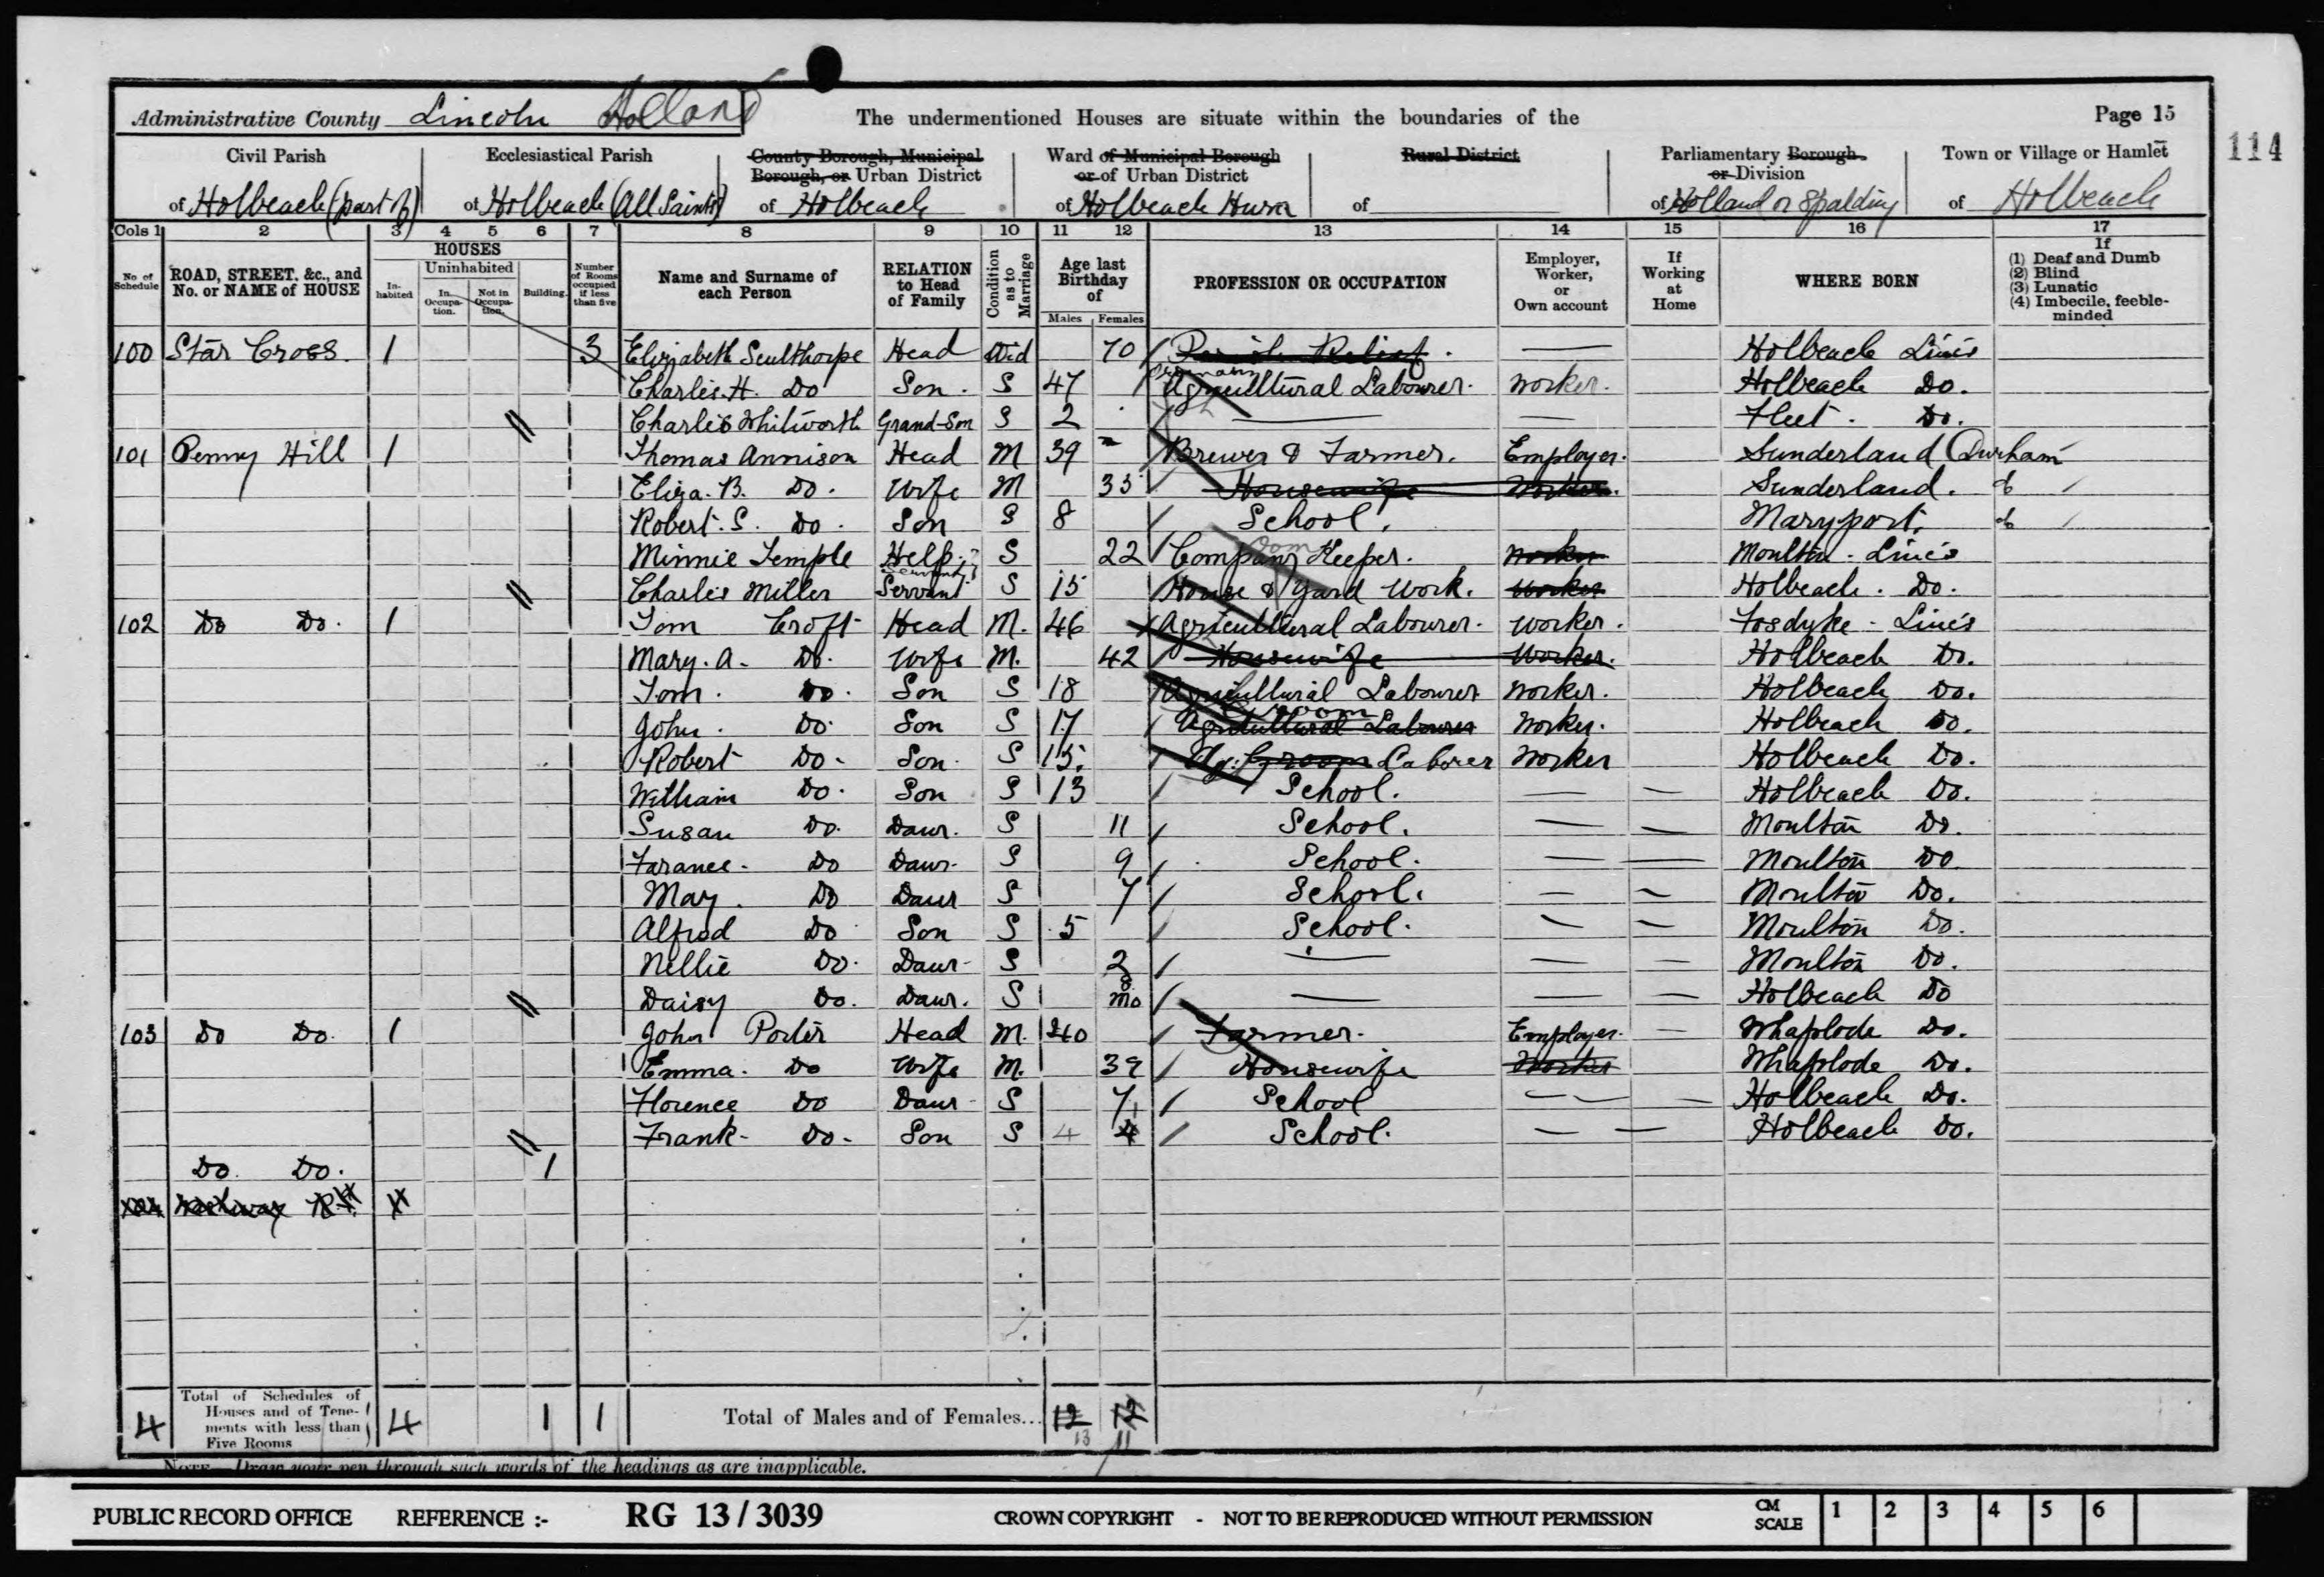 Administrative County Lincoln Holland The undermentioned Houses are situate within the boundaries of the Page 15
114
Civil Parish Ecclesiastical Parish County Borough, Municipal Borough, or Urban District Ward of Municipal Borough or of Urban District Rural District Parliamentary Borough or Division Town or Village or Hamlet
of Holbeach (part of) of Holbeach (All Saints) of Holbeach of Holbeach Hurn of of Holland or Spalding of Holbeach
Cols 1 2 3 4 5 6 7 8 9 10 11 12 13 14 15 16 17
No. of Schedule ROAD, STREET, &c., and No. or NAME of HOUSE HOUSES Inhabited Uninhabited In Occupation. Not in Occupation. Building. Number of Rooms occupied if less than five Name and Surname of each Person RELATION to Head of Family Condition as to Marriage Age last Birthday of Males Females PROFESSION OR OCCUPATION Employer, Worker, or Own account If Working at Home WHERE BORN If (1) Deaf and Dumb (2) Blind (3) Lunatic (4) Imbecile, feeble-minded
100 Star Cross. 1 3 Elizabeth Sculthorpe Head Wid 70 Parish Relief. Holbeach Lincs
Charlie. H. Do Son. S 47 Agricultural Labourer. Worker. Holbeach Do.
Charlie Whitworth Grand-Son S 2 Fleet. Do.
101 Penny Hill 1 Thomas Annison Head M 39 Brewer & Farmer. Employer. Sunderland Durham
Eliza. B. Do. Wife M 35 Housewife Worker. Sunderland. do
Robert. S. Do. Son S 8 School. Maryport. do
Minnie Temple Help. servant S 22 Company Keeper. Dom Worker Moulton. Lincs
Charlie Miller Servant S 15 House & Yard Work. Worker Holbeach. Do.
102 Do Do. 1 Tom Croft Head M. 46 Agricultural Labourer. Worker. Fosdyke - Lincs
Mary. A. Do. Wife M. 42 Housewife Worker. Holbeach Do.
Tom. Do. Son S 18 Agricultural Labourer Worker. Holbeach Do.
John. Do. Son S 17 Groom Agricultural Labourer Worker. Holbeach Do.
Robert Do. Son. S 15. Ag: Groom Laborer Worker Holbeach Do.
William Do. Son S 13 School. Holbeach Do.
Susan Do. Daur. S 11 School. Moulton Do.
Farance. Do Daur. S 9 School. Moulton Do
May. Do Daur S 7 School. Moulton Do.
Alfred Do Son S 5 School. Moulton Do.
Nellie Do. Daur. S 2 Moulton Do.
Daisy Do. Daur. S 8 mo Holbeach Do
103 Do Do. 1 John Porter Head M. 40 Farmer. Employer. Whaplode Do.
Emma. Do Wife M. 39 Housewife Worker Whaplode Do.
Florence Do Daur S 7 School Holbeach Do.
Frank. Do. Son S 4 4 School. Holbeach Do.
Do. Do. 1
4 Total of Schedules of Houses and of Tenements with less than Five Rooms 4 1 1 Total of Males and of Females... 12 12
13 11
NOTE—Draw your pen through such words of the headings as are inapplicable.
PUBLIC RECORD OFFICE REFERENCE :- RG 13 / 3039 CROWN COPYRIGHT - NOT TO BE REPRODUCED WITHOUT PERMISSION CM SCALE 1 2 3 4 5 6